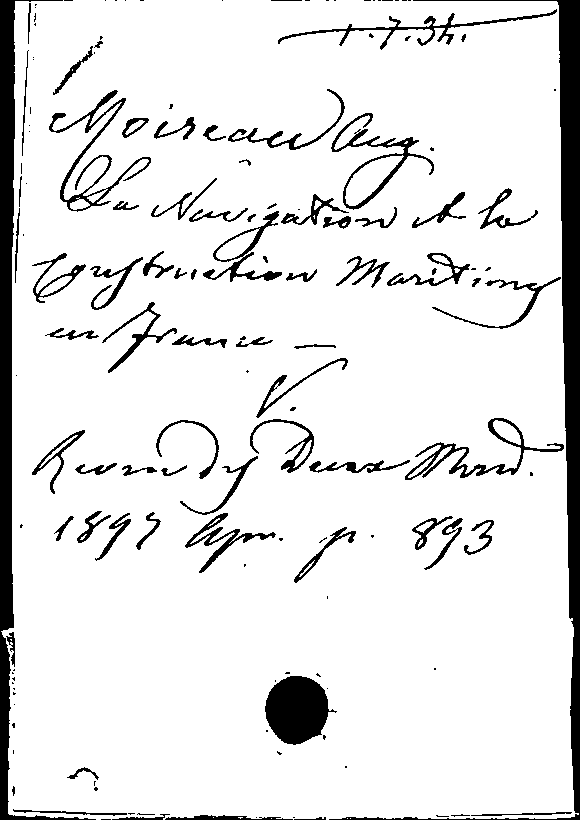 1.7.34.
Moireau Aug.
La Navigation et la
Construction Maritime
en France —
V.
Revue des Deux Mond.
1897 Apr. p. 893